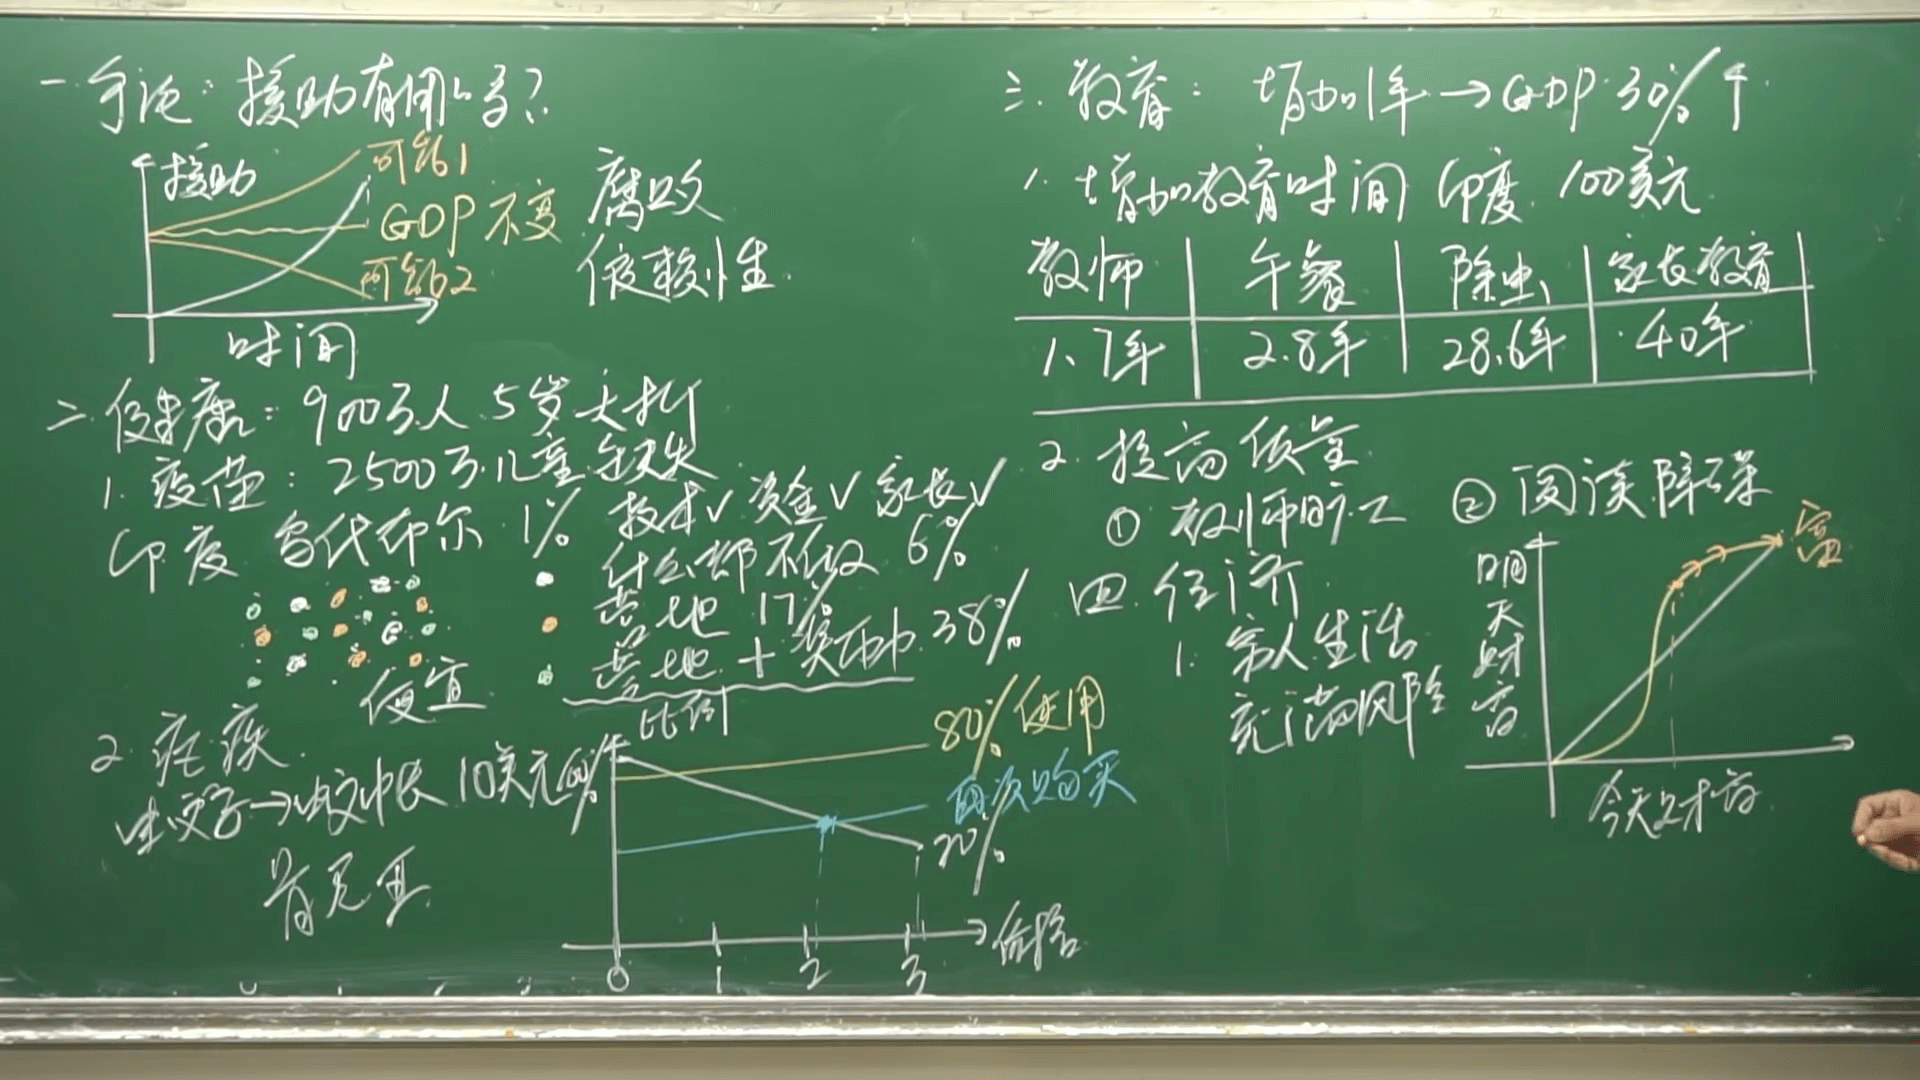 一. 争论: 援助有用吗?
援助
可能1
GDP不变
可能2
时间
腐败
依赖性.
二. 健康: 900万人 5岁夭折
1. 疫苗: 2500万儿童缺失
印度 乌代布尔 1% 技术√ 资金√ 家长√
什么都不做 6%
营地 17%
营地 + 奖励 38%
便宜
2. 疟疾
蚊子→蚊帐 10美元
肯尼亚
比例
80% 使用
再次购买
20%
0 1 2 3 价格
三. 教育: 增加1年→GDP 30%↑
1. 增加教育时间 印度 100美元
教师 午餐 除虫 家长教育
1.7年 2.8年 28.6年 40年
2. 提高质量
① 教师旷工
② 阅读障碍
四. 经济
1. 穷人生活
充满风险
明天财富
富
今天财富